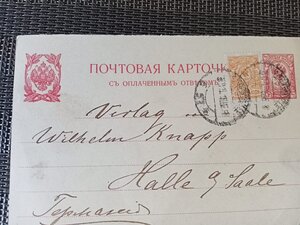 ПОЧТОВАЯ КАРТОЧ
СЪ ОПЛАЧЕННЫМЪ ОТВѢТОМЪ
Verlag von
Wilhelm Knapp
Halle a/Saale
Германія